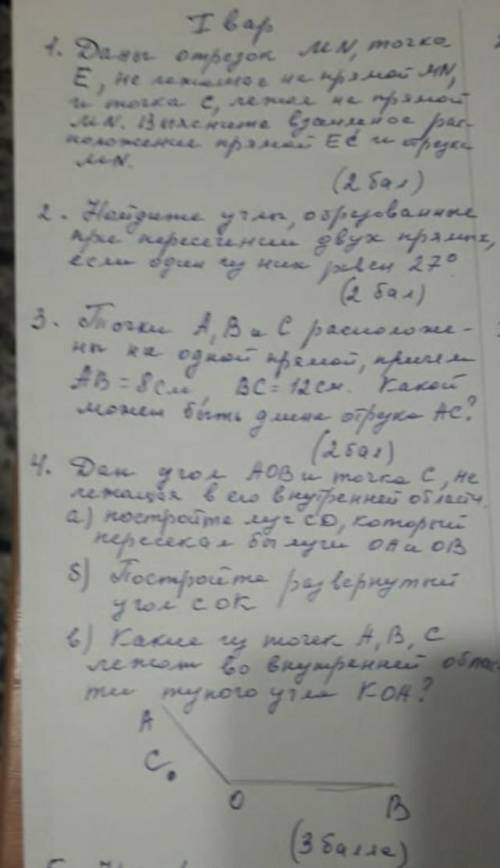 I вар
1. Даны отрезок MN, точка
E, не лежащая на прямой MN,
и точка C, лежащ на прямой
MN. Выясните взаимное рас-
положение прямой EC и отрезка
MN.
(2 бал)
2. Найдите углы, образованные
при пересечении двух прямых,
если один из них равен 27°.
(2 бал)
3. Точки A, B и C расположе-
ны на одной прямой, причем
AB = 8см BC = 12см. Какой
может быть длина отрезка AC?
(2 бал)
4. Дан угол AOB и точка C, не
лежащая в его внутренней области.
а) постройте луч CD, который
пересекал бы лучи OA и OB
б) Постройте развернутый
угол COK
в) Какие из точек A, B, C
лежат во внутренней облас-
ти тупого угла KOA?
A
C
O
B
(3 балла)